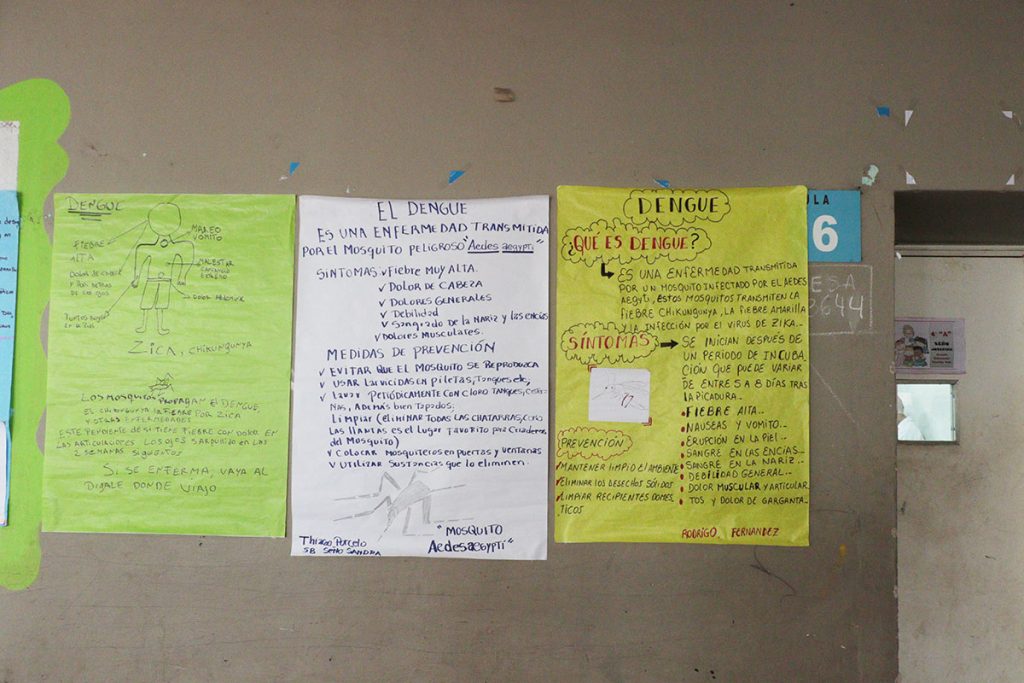 DENGUE
MAREO
VOMITO
FIEBRE
ALTA
MALESTAR
CANSANCIO
DOLOR DE CABEZA
Y POR DETRAS
DE LOS OJOS
DOLOR
PUNTOS ROJOS
EN LA PIEL
ZICA, CHIKUNGUNYA
LOS MOSQUITOS PROPAGAN EL DENGUE
EL CHIKUNGUNYA LA FIEBRE POR ZICA
Y OTRAS ENFERMEDADES
ESTE PENDIENTE DE SI TIENE FIEBRE CON DOLOR EN
LAS ARTICULACIONES LOS OJOS SARPULLIDO EN LAS
2 SEMANAS
SI SE ENFERMA, VAYA AL
DIGALE DONDE VIAJO
EL DENGUE
ES UNA ENFERMEDAD TRANSMITIDA
POR EL MOSQUITO PELIGROSO "Aedes aegypti"
SINTOMAS ✓ Fiebre MUY ALTA.
✓ DOLOR DE CABEZA
✓ DOLORES GENERALES
✓ Debilidad
✓ Sangrado DE LA NARIZ y las encías
✓ DOLORES MUSCULARES.
MEDIDAS DE PREVENCIÓN
✓ EVITAR QUE EL MOSQUITO SE REPRODUZCA
✓ USAR Larvicidas en Piletas, Tanques, etc,
✓ Lavar PERIÓDICAMENTE CON CLORO TANQUES,
NAS, Además bien Tapados;
LIMPIAR (ELIMINAR TODAS LAS CHATARRAS, COMO
LAS LLANTAS es el LUGAR FAVORITO POR Criaderos
del MOSQUITO)
✓ COLOCAR MOSQUITEROS EN PUERTAS y VENTANAS
✓ UTILIZAR SUSTANCIAS QUE LO ELIMINEN.
"MOSQUITO
Aedes aegypti"
Thiago Porcelo
5B SEÑO SANDRA
DENGUE
¿QUE ES DENGUE?
ES UNA ENFERMEDAD TRANSMITIDA
POR UN MOSQUITO INFECTADO POR EL AEDES
AEgyti, ESTOS MOSQUITOS TRANSMITEN LA
FIEBRE CHIKUNGUNYA, LA FIEBRE AMARILLA
Y LA INFECCIÓN POR EL VIRUS DE ZIKA...
SÍNTOMAS
SE INICIAN DESPUÉS DE
UN PERIODO DE INCUBA.
CIÓN QUE PUEDE VARIAR
DE ENTRE 5 A 8 DÍAS TRAS
LA PICADURA...
• FIEBRE ALTA...
• NAUSEAS Y VOMITO...
• ERUPCIÓN EN LA PIEL...
• SANGRE EN LAS ENCÍAS...
• SANGRE EN LA NARIZ...
• DEBILIDAD GENERAL...
• DOLOR MUSCULAR Y ARTICULAR
• TOS Y DOLOR DE GARGANTA...
PREVENCIÓN
✓ MANTENER LIMPIO EL AMBIENTE
✓ ELIMINAR LOS DESECHOS SÓLIDOS
✓ LIMPIAR RECIPIENTES DOMES
TICOS
RODRIGO FERNANDEZ
ULA
6
E.S.A
3644
4° "A"